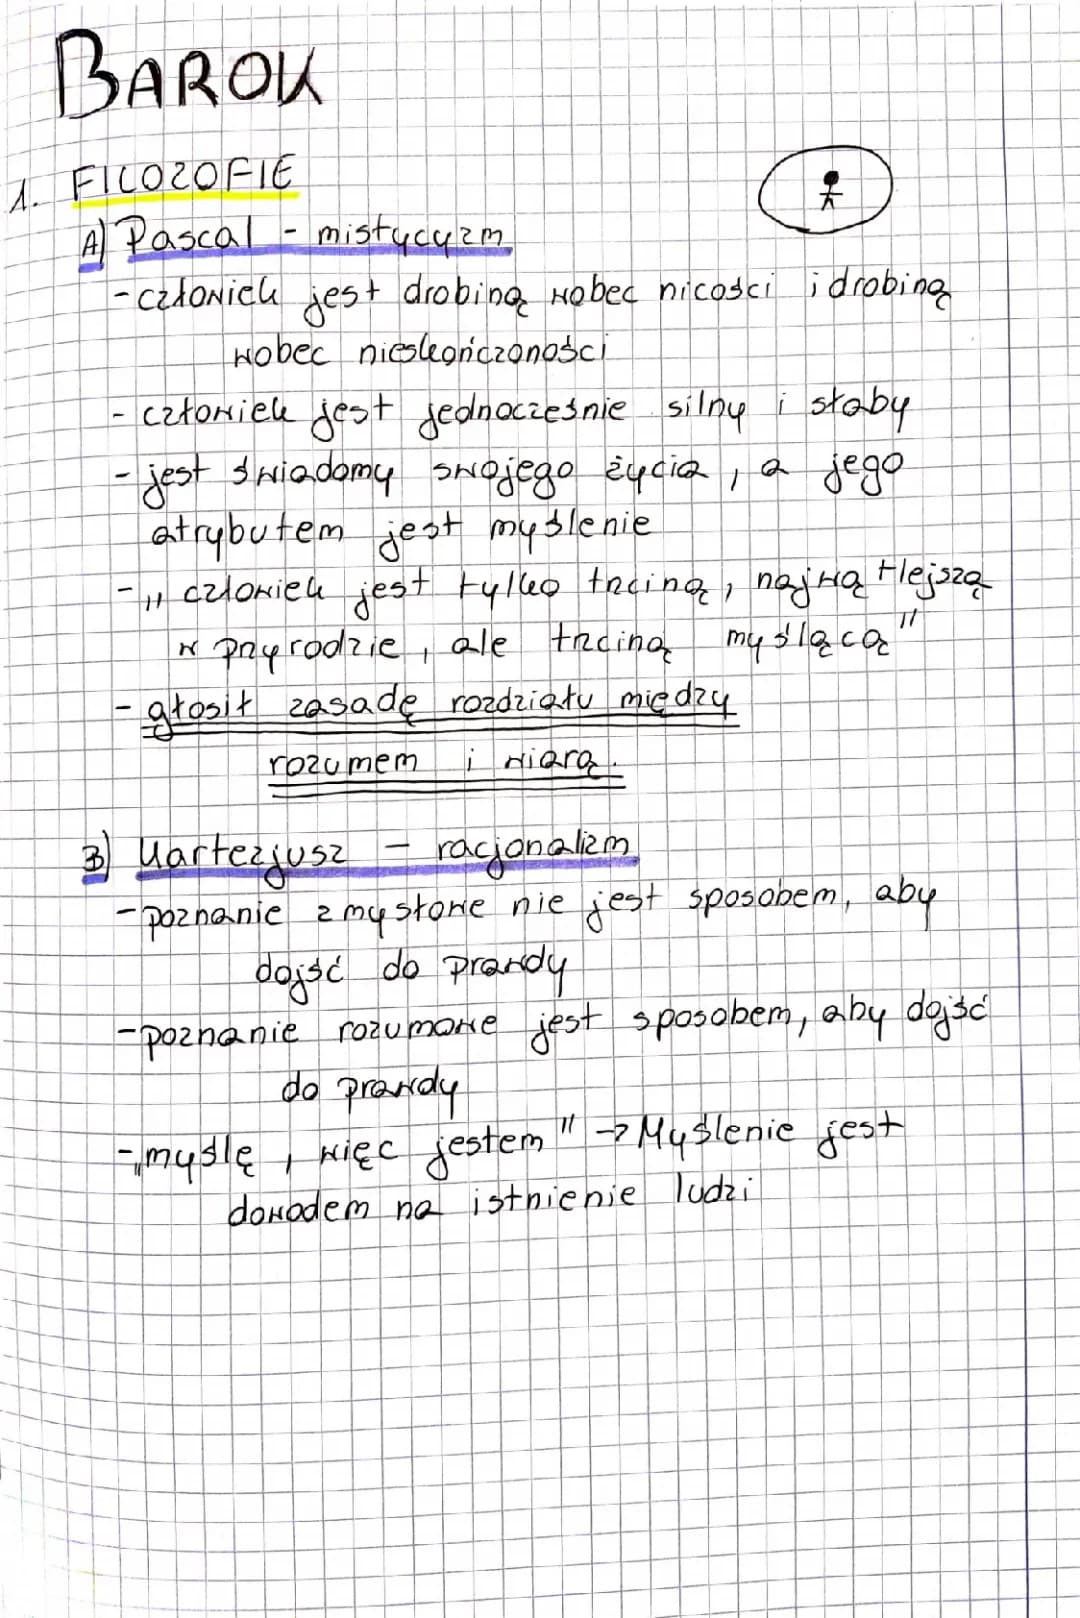 BAROK
1. FILOZOFIE
A) Pascal - mistycyzm
- człowiek jest drobiną wobec nicości i drobiną
wobec nieskończoności
- człowiek jest jednocześnie silny i słaby
- jest świadomy swojego życia, a jego
atrybutem jest myślenie
- „człowiek jest tylko trzciną, najwątlejszą
w przyrodzie, ale trzciną myślącą"
- głosił zasadę rozdziału między
rozumem i wiarą.
B) Kartezjusz - racjonalizm
- poznanie zmysłowe nie jest sposobem, aby
dojść do prawdy
- poznanie rozumowe jest sposobem, aby dojść
do prawdy
- „myślę, więc jestem" → Myślenie jest
dowodem na istnienie ludzi